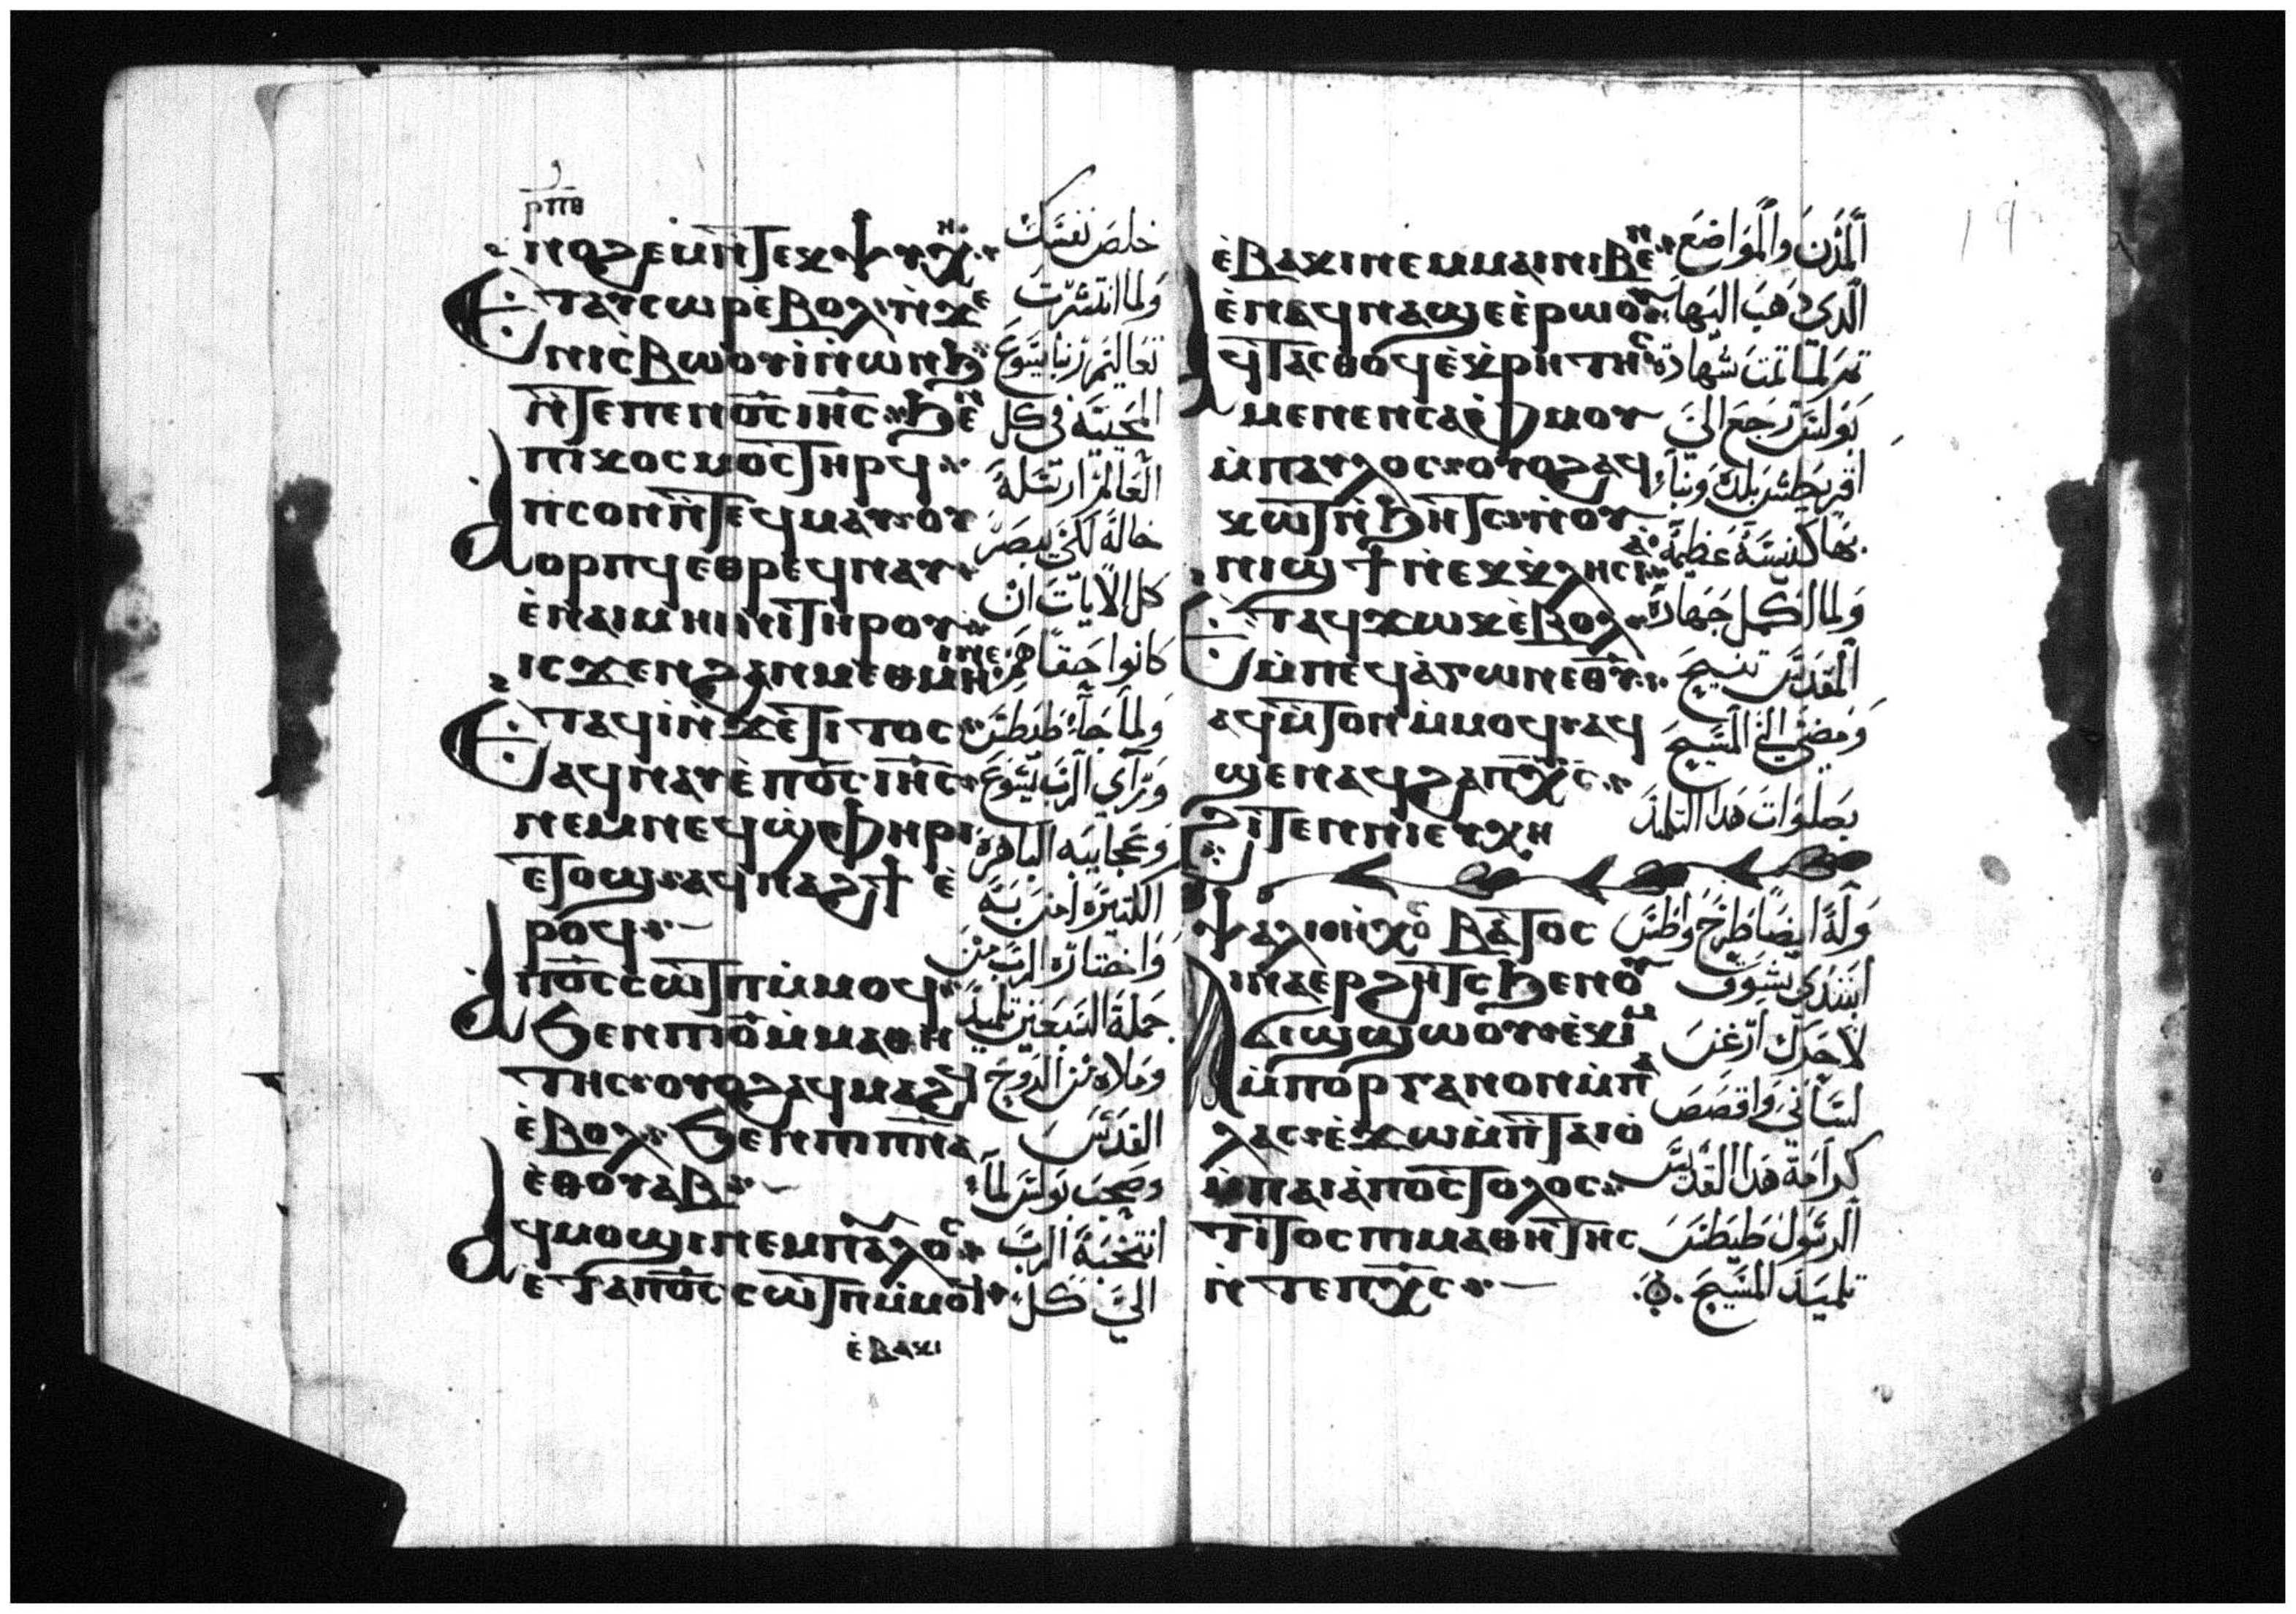 ⲣⲡⲑ
ⲛⲟϩⲉⲙ̀ⲛ̀ⲧⲉⲕⲯⲩⲭⲏ
ⲉⲧⲁⲩⲥⲱⲣ ⲉ̀ⲃⲟⲗ ⲛ̀ϫⲉ
ⲛⲓⲥ̀ⲃⲱⲟⲩⲓ̀ⲛ̀ⲱⲛϧ
ⲛ̀ⲧⲉⲡⲉⲛⲟ̅ⲥ̅ ⲓⲏ̅ⲥ̅ ϧⲉⲛ
ⲡⲓⲕⲟⲥⲙⲟⲥ ⲧⲏⲣϥ
ⲁⲡⲥⲟⲛ ⲛ̀ⲧⲉϥⲙⲁⲩ ⲟⲩ
ⲟⲣⲡϥ ⲉⲑⲣⲉϥⲛⲁⲩ
ⲉ̀ⲛⲁⲓⲙⲏⲓⲛⲓ ⲧⲏⲣⲟⲩ
ⲓⲥϫⲉⲛ ϩⲁⲛⲙⲉⲑⲙⲏⲓ ⲛⲉ
ⲉⲧⲁϥⲓ̀ ⲛ̀ϫⲉ ⲧⲓⲧⲟⲥ
ⲁϥⲛⲁⲩ ⲉ̀ⲡⲟ̅ⲥ̅ ⲓⲏ̅ⲥ̅
ⲛⲉⲙⲛⲉϥϣⲫⲏⲣⲓ
ⲉⲧⲟϣ ⲁϥⲛⲁϩϯ ⲉ̀
ⲣⲟϥ
ⲁⲡⲟ̅ⲥ̅ ⲥⲱⲧⲡ ⲙ̀ⲙⲟϥ
ϧⲉⲛ ⲡⲓⲟ̅ ⲙ̀ⲙⲁⲑⲏ
ⲧⲏⲥ ⲟⲩⲟϩ ⲁϥⲙⲁϩϥ
ⲉ̀ⲃⲟⲗ ϧⲉⲛ ⲡⲓⲡ̅ⲛ̅ⲁ̅
ⲉ̀ⲑⲟⲩⲁⲃ
ⲁϥⲙⲟϣⲓ ⲛⲉⲙ ⲡⲁⲩⲗⲟⲥ
ⲉⲧⲁⲡⲟ̅ⲥ̅ ⲥⲱⲧⲡ ⲙ̀ⲙⲟϥ
ⲉ̀ⲃⲁⲕⲓ
خلص نفسك
ولما انتشرت
تعاليم ربنا يسوع
المحيية في كل
العالم ارسله
خاله لكي يبصر
كل الايات ان
كانوا حقا هم
ولما جاء طيطس
وراى الرب يسوع
وعجايبه الباهرة
الكتيرة امن به
واختاره الرب من
جملة السبعين تلميذ
وملاه من الروح
القدس
وصحب بولس لما
انتخبه الرب
الى كل
ⲉ̀ⲃⲁⲕⲓ ⲛⲉⲙ ⲙⲁⲓ ⲛⲓⲃⲉⲛ
ⲉ̀ⲛⲁϥⲛⲁϣⲉ ⲉ̀ⲣⲱⲟⲩ
ⲁϥⲧⲁⲥⲑⲟϥ ⲉ̀ⲕⲣⲏⲧⲏⲥ
ⲙⲉⲛⲉⲛⲥⲁ ⲫ̀ⲙⲟⲩ
ⲙ̀ⲡⲁⲩⲗⲟⲥ ⲟⲩⲟϩ ⲁϥ
ⲕⲱⲧ ⲛ̀ϧⲏⲧⲥ ⲛ̀ⲟⲩ
ⲛⲓϣϯ ⲛ̀ⲉⲕⲕⲗⲏⲥⲓⲁ
ⲉⲧⲁϥϫⲱⲕ ⲉ̀ⲃⲟⲗ
ⲙ̀ⲡⲉϥⲁ̀ⲅⲱⲛ ⲉⲑ̅ⲩ̅
ⲁϥⲙ̀ⲧⲟⲛ ⲙ̀ⲙⲟϥ ⲁϥ
ϣⲉⲛⲁϥ ϩⲁ ⲡⲭ̅ⲥ̅
ϩⲓⲧⲉⲛ ⲛⲓⲉⲩⲭⲏ
ⲯⲁⲗⲓ ⲏⲭⲟⲥ ⲃⲁⲧⲟⲥ
ϯⲛⲁⲉⲣϩⲏⲧⲥ ϧⲉⲛ ⲟⲩ
ϭⲓϣϣⲱⲟⲩ ⲉ̀ⲕⲓⲙ
ⲙ̀ⲡⲟⲣⲅⲁⲛⲟⲛ ⲙ̀ⲡⲁ
ⲗⲁⲥ ⲉ̀ϫⲱ ⲙ̀ⲡ̀ⲧⲁⲓⲟ̀
ⲙ̀ⲡⲁⲓⲁ̀ⲡⲟⲥⲧⲟⲗⲟⲥ
ⲧⲓⲧⲟⲥ ⲡⲓⲙⲁⲑⲏⲧⲏⲥ
ⲛ̀ⲧⲉ ⲡⲭ̅ⲥ̅
المدن والمواضع
الدى دهب اليها
تم لما تمت شهادة
بولس رجع الى
اقريطش بلك وبنا
بها كنيسة عظيمة
ولما اكمل جهاده
المقدس تنيح
ومضى الى المسيح
بصلوات هدا التلميد
وله ايضا طرح واطس
ابتدى بشوق
لاحرك ارغن
لساني واقصص
كرامة هدا القديس
الرسول طيطس
تلميد المسيح